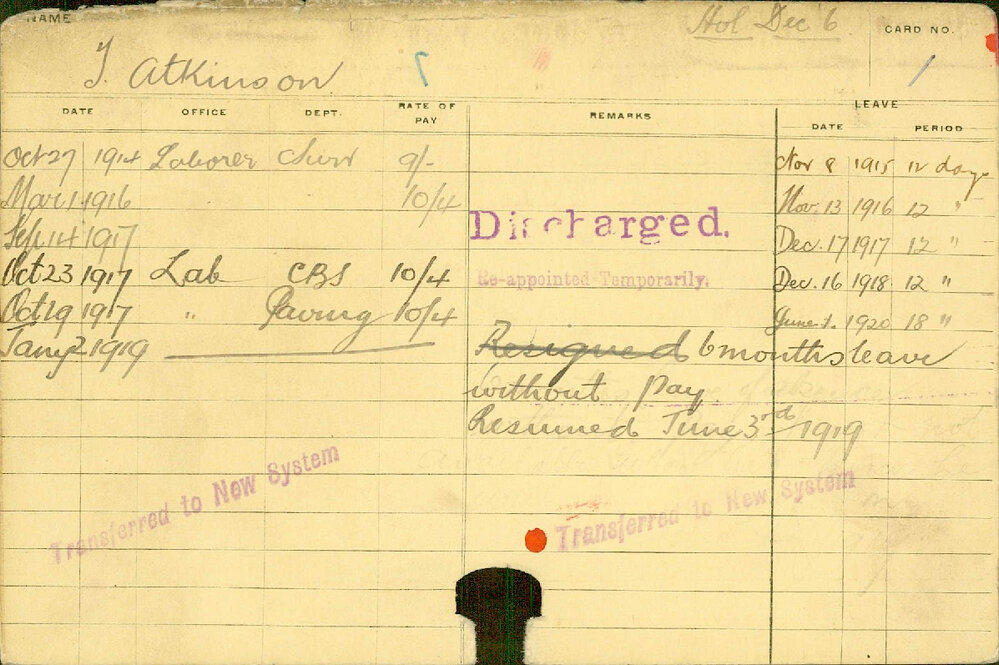 NAME
Hol Dec 6
CARD NO.
T. Atkinson
1
DATE OFFICE DEPT. RATE OF PAY REMARKS LEAVE
DATE PERIOD
Oct 27 1914 Laborer 9/- Nov 8 1915 12 days
Mar 1 1916 10/4 Nov. 13 1916 12 "
Sep 14 1917 Discharged. Dec. 17 1917 12 "
Oct 23 1917 Lab CBS 10/4 Re-appointed Temporarily. Dec. 16 1918 12 "
Oct 19 1917 " Paving 10/4 June 1. 1920 18 "
Jany 2 1919 Resigned 6 months leave
without pay
Resumed June 3rd 1919
Transferred to New System
Transferred to New System